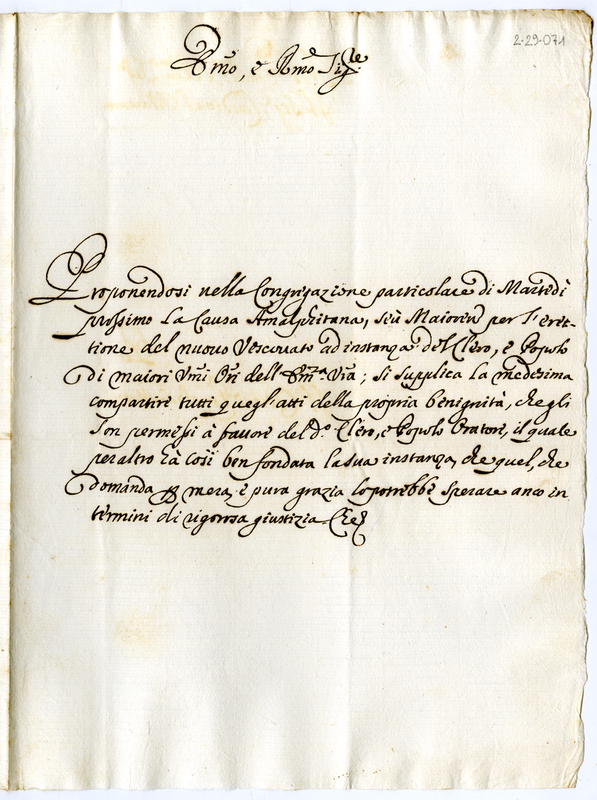 2-29-071
Em̄o, e Rm̄o Sig.re
Proponendosi nella Congregazione particolare di Martedì
prossimo La Causa Amalphitana, seù Maioren per l'eret-
tione del nuovo Vescovato ad instanza del Clero, e Popolo
di maiori Um̄i Or̄i dell' Em̄za V̄ra; si supplica La medesima
compartire tutti quegl'atti della propria benignità, che gli
son permessi à favore del d.o Clero, e Popolo Oratore, il quale
per altro hà così ben fondata la sua instanza, che quel, che
domanda p mera, e pura grazia lo potrebbe sperare anco in
termini di rigorosa giustizia. Che